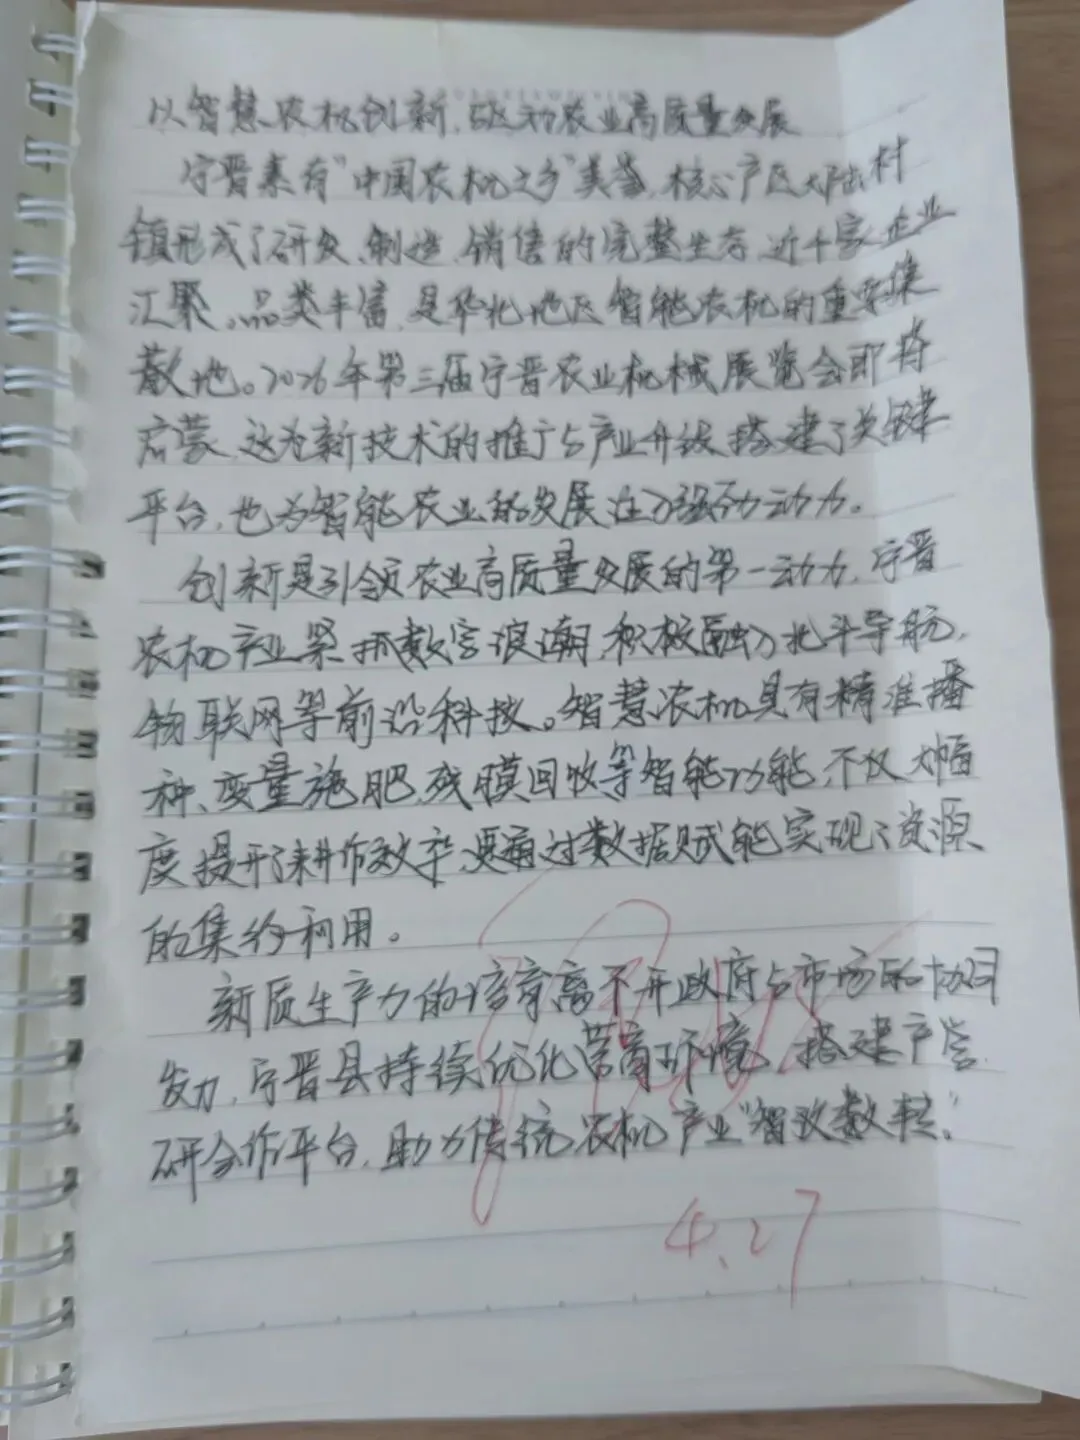 以智慧农机创新,驱动农业高质量发展
宁晋素有"中国农机之乡"美誉,核心产区大陆村
镇形成了研发、制造、销售的完整生态,近千家企业
汇聚,品类丰富,是华北地区智能农机的重要集
散地。2026年第三届宁晋农业机械展览会即将
启蒙,这为新技术的推广与产业升级搭建了关键
平台,也为智能农业的发展注入强劲动力。
创新是引领农业高质量发展的第一动力,宁晋
农机产业紧抓数字浪潮,积极融入北斗导航,
物联网等前沿科技。智慧农机具有精准播
种、变量施肥,残膜回收等智能功能,不仅大幅
度提升了耕作效率,更通过数据赋能实现了资源
的集约利用。
新质生产力的培育离不开政府与市场的协同
发力,宁晋县持续优化营商环境,搭建产学
研合作平台,助力传统农机产业"智改数转"
4.27